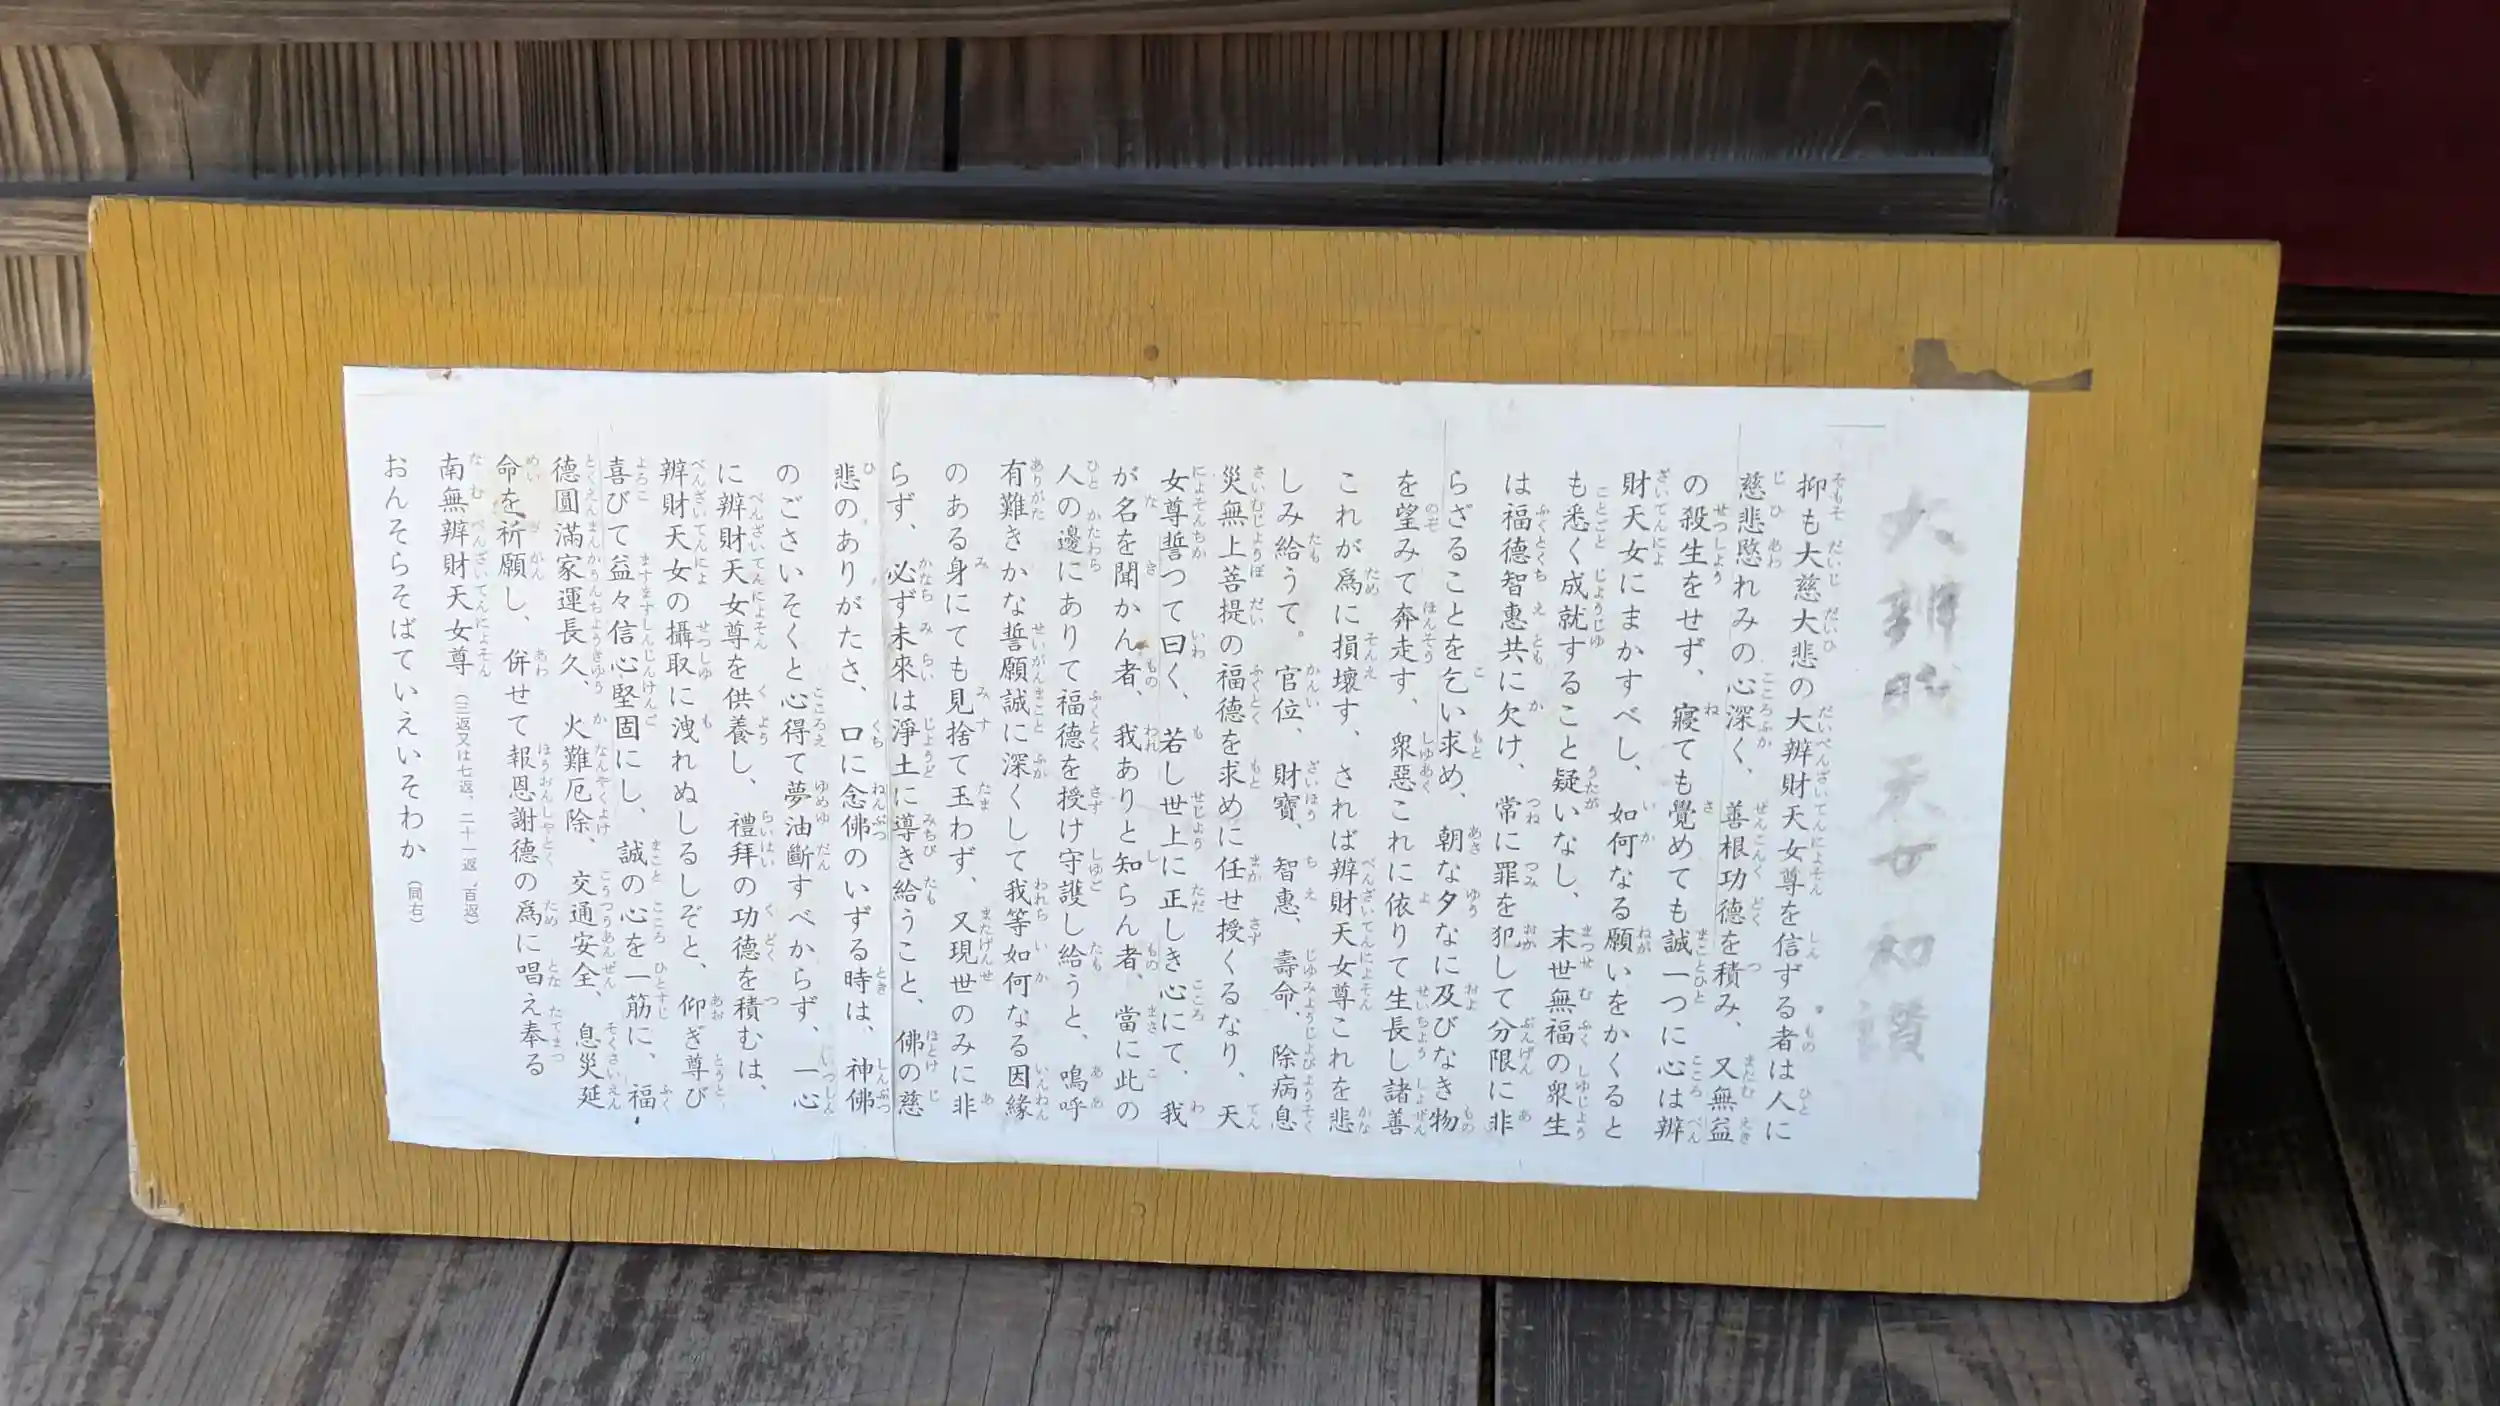 大辨財天女和讃
抑も大慈大悲の大辨財天女尊を信ずる者は人に
慈悲愍れみの心深く、善根功德を積み、又無益
の殺生をせず、寝ても覺めても誠一つに心は辨
財天女にまかすべし、如何なる願いをかくると
も悉く成就すること疑いなし、末世無福の衆生
は福德智惠共に欠け、常に罪を犯して分限に非
らざることを乞い求め、朝な夕なに及びなき物
を望みて奔走す、衆惡これに依りて生長し諸善
これが爲に損壞す、されば辨財天女尊これを悲
しみ給うて。官位、財寶、智惠、壽命、除病息
災無上菩提の福德を求めに任せ授くるなり、天
女尊誓つて曰く、若し世上に正しき心にて、我
が名を聞かん者、我ありと知らん者、當に此の
人の邊にありて福德を授け守護し給うと、嗚呼
有難きかな誓願誠に深くして我等如何なる因緣
のある身にても見捨て玉わず、又現世のみに非
らず、必ず未來は淨土に導き給うこと、佛の慈
悲のありがたさ、口に念佛のいずる時は、神佛
のごさいそくと心得て夢油斷すべからず、一心
に辨財天女尊を供養し、禮拜の功德を積むは、
辨財天女の攝取に洩れぬしるしぞと、仰ぎ尊び
喜びて益々信心堅固にし、誠の心を一筋に、福
德圓滿家運長久、火難厄除、交通安全、息災延
命を祈願し、併せて報恩謝德の爲に唱え奉る
南無辨財天女尊（三返又は七返、二十一返、百返）
おんそらそばていえいそわか（同右）